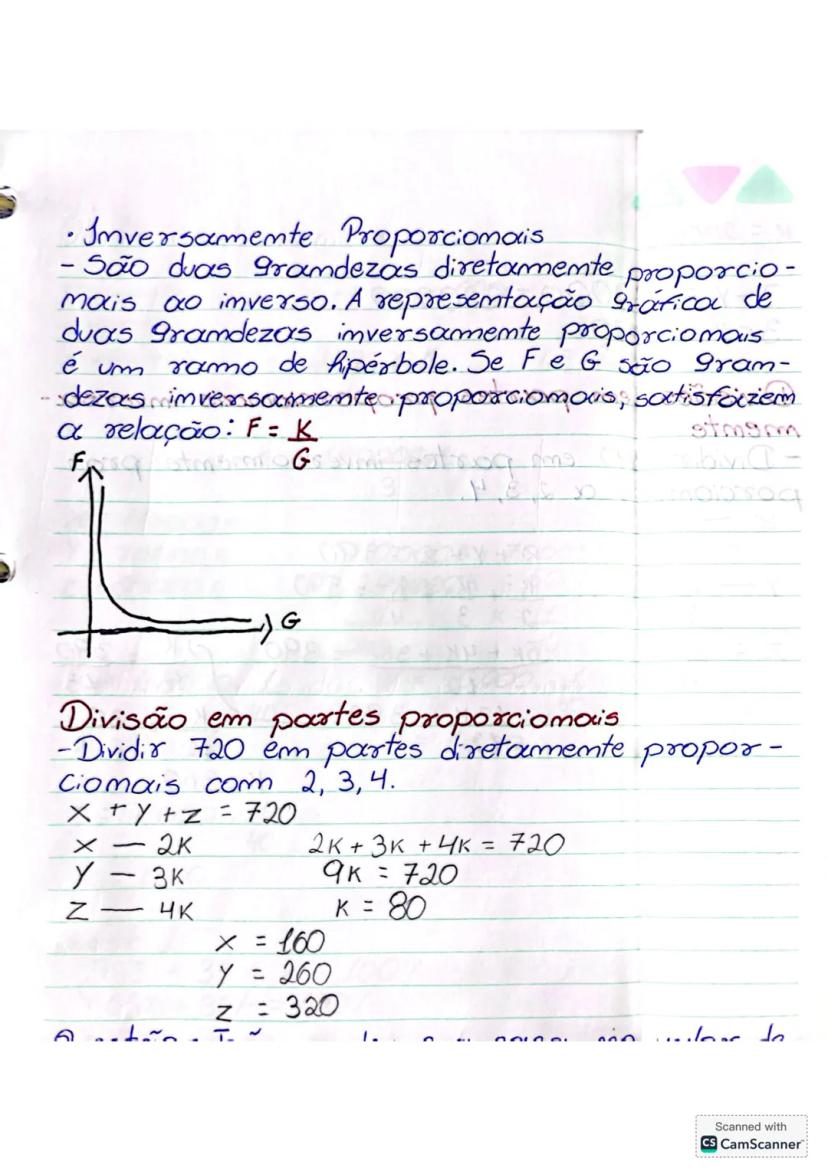 · Inversamente Proporcionais
- São duas grandezas diretamente proporcio-
nais ao inverso. A representação gráfica de
duas grandezas inversamente proporcionais
é um ramo de hipérbole. Se F e G são gran-
dezas inversamente proporcionais, satisfazem
a relação: F = K/G
F
G
Divisão em partes proporcionais
- Dividir 720 em partes diretamente propor-
cionais com 2, 3, 4.
x + y + z = 720
x — 2K 2K + 3K + 4K = 720
y — 3K 9K = 720
z — 4K K = 80
x = 160
y = 260
z = 320
Scanned with
CS CamScanner